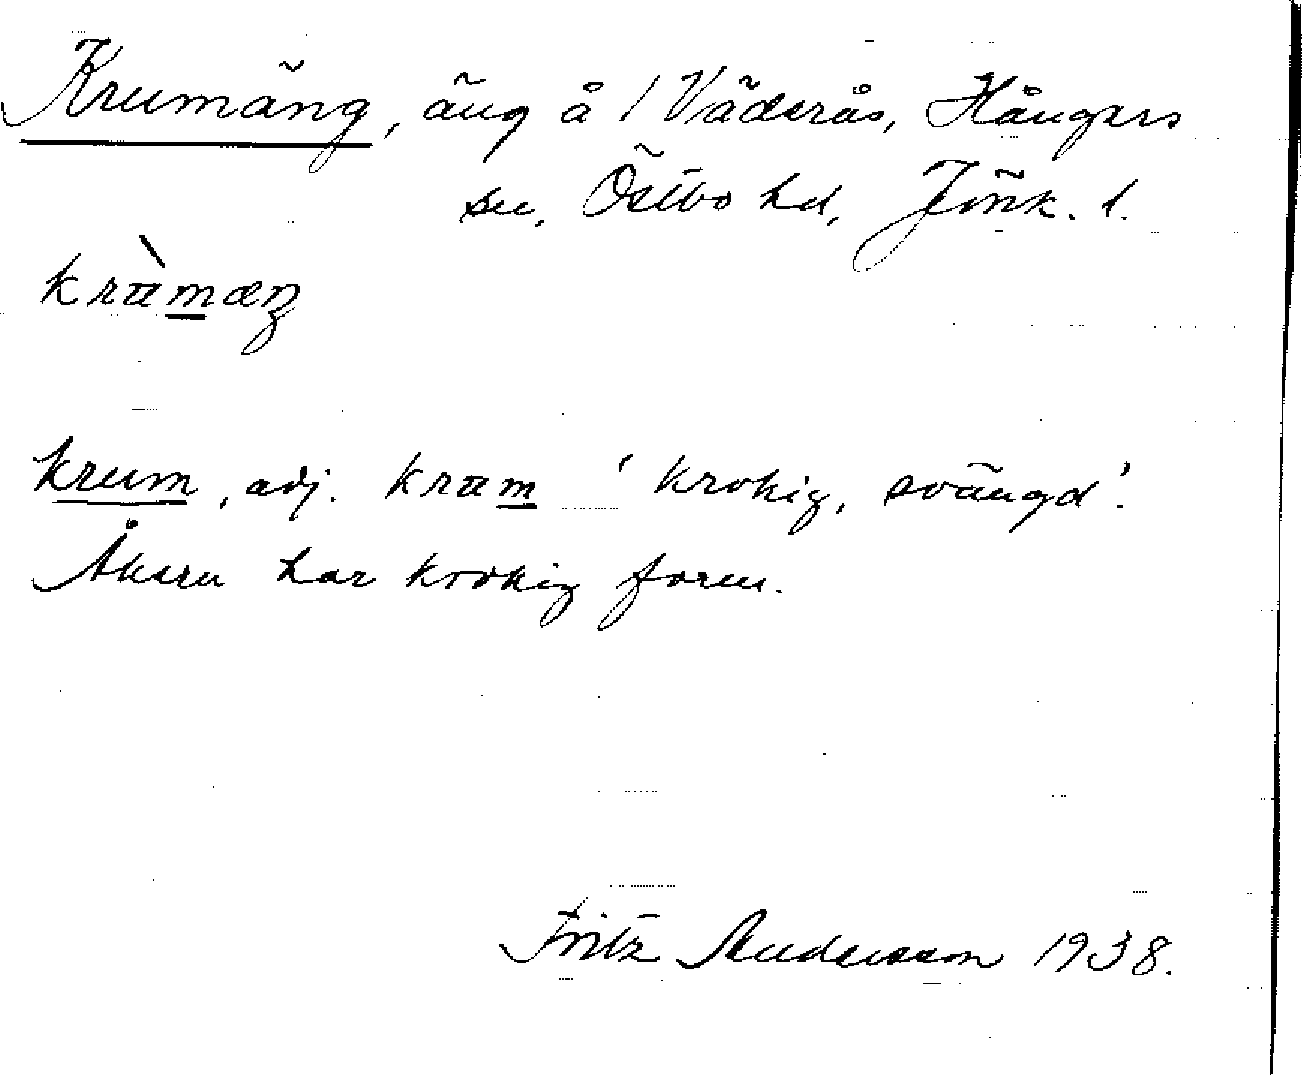 Krumäng, äng å 1 Väderås, Hångers
sn, Östbo hd, Jönk. l.
krùmæŋ
krum, adj. krum 'krokig, svängd'.
Åkern har krokig form.
Fritz Andersson 1938.